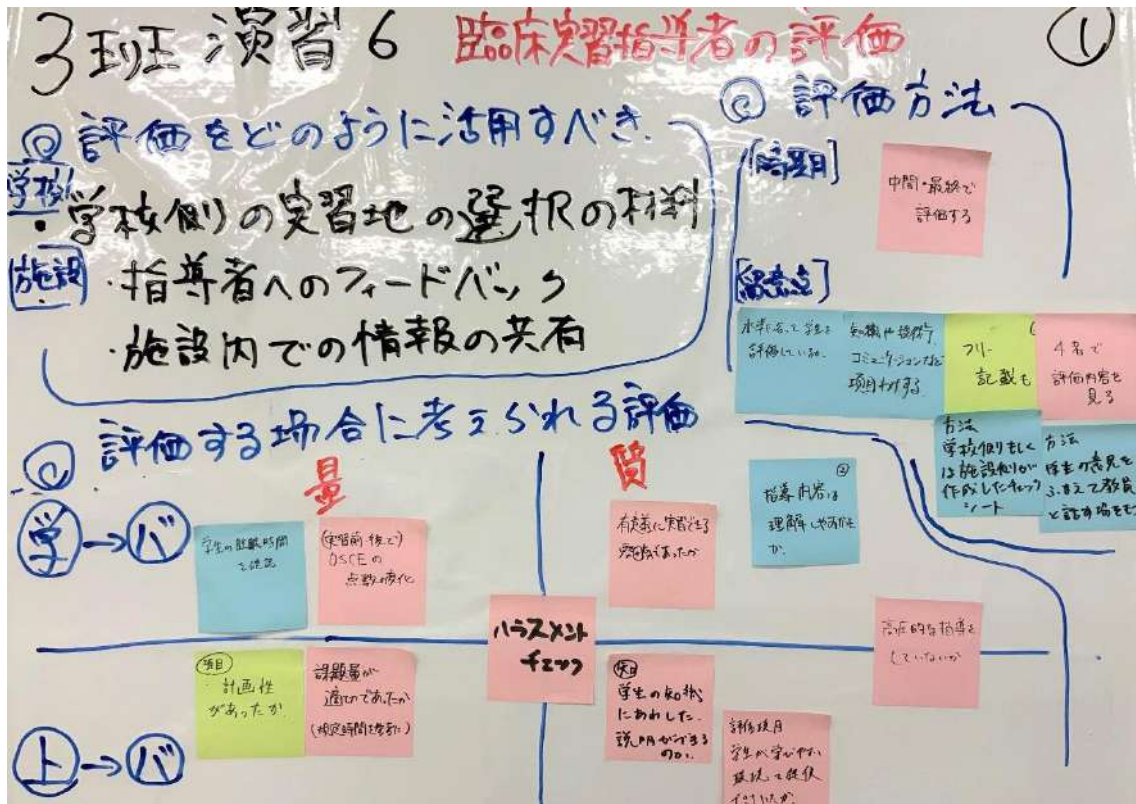 3班 演習6 臨床実習指導者の評価 ①
◎評価をどのように活用すべき
学校
・学校側の実習地の選択の材料
施設
・指導者へのフィードバック
・施設内での情報の共有
◎評価方法
[時期]
中間・最終で
評価する
[留意点]
水準に合って学生を
評価しているか.
知識や技術
コミュニケーションなど
項目わけする
フリー
記載も
4者で
評価内容を
見る
方法
学校側もしく
は施設側が
作成したチェック
シート
方法
学生の意見を
ふまえて教員
と話す場をもつ
◎評価する場合に考えられる評価
量
質
学→バ
学生の
(実習前・後で)
OSCEの
点数の変化
有意義に実習できる
であったか
②
指導内容は
理解しやすかった
か.
ハラスメント
チェック
高圧的な指導を
していないか
上→バ
項目
・計画性
があったか
課題量が
適切であったか
学生の知識
にあわした.
説明ができる
のか.
評価項目
学生が学びやすい
環境を提供
できていたか.